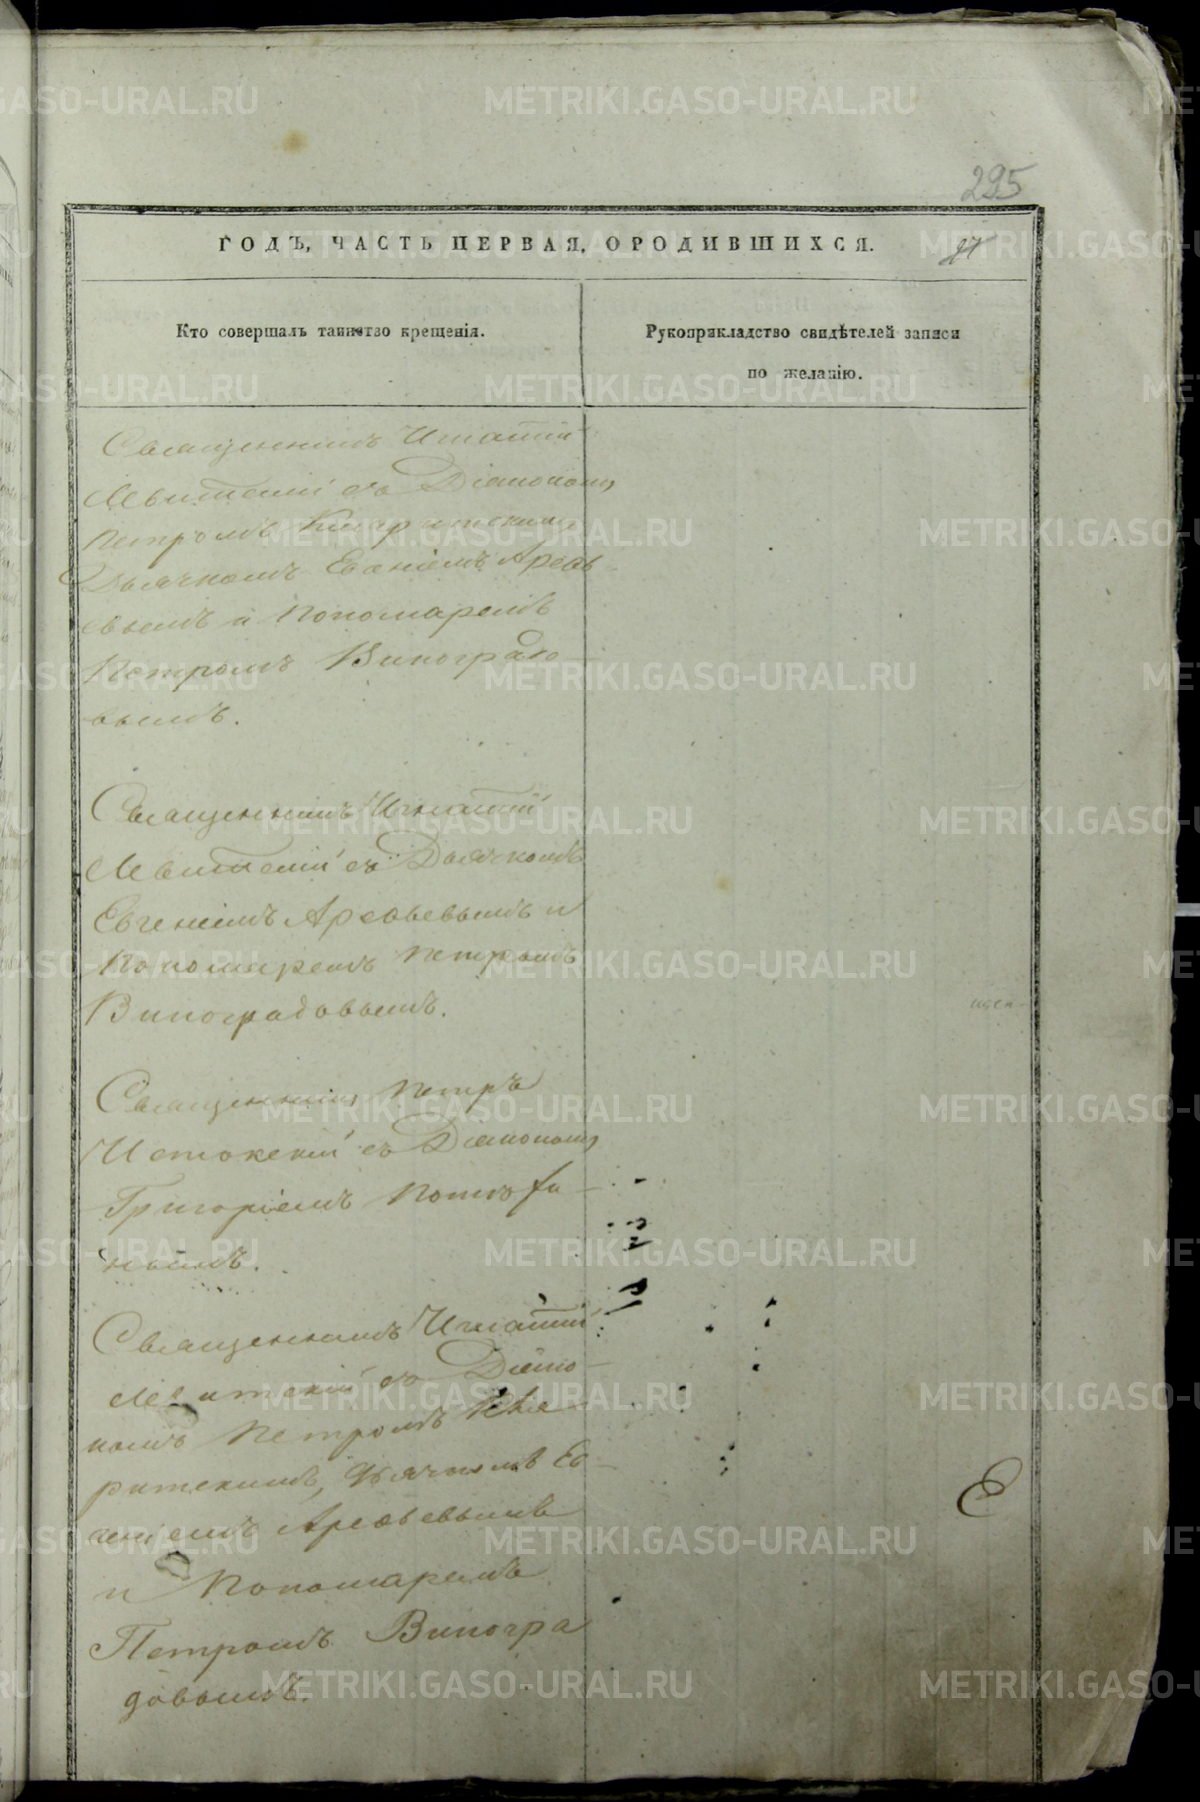 295
ГОДЪ, ЧАСТЬ ПЕРВАЯ, О РОДИВШИХСЯ.
27
Кто совершалъ таинство крещенія.
Рукоприкладство свидѣтелей записи
по желанію.
Священникъ Игнатій
Левитскій съ Діакономъ
Петромъ
Дьячкомъ Евгеніемъ Арефь
евымъ и Пономаремъ
Петромъ Виноградо
вымъ.
Священникъ Игнатій
Левитскій съ Дьячкомъ
Евгеніемъ Арефьевымъ и
Пономаремъ Петромъ
Виноградовымъ.
Священникъ Петръ
Истокскій съ Діакономъ
Григоріемъ
нымъ.
Священникъ Игнатій
Левитскій съ Діако
номъ Петромъ
ритскимъ, Дьячкомъ Ев
геніемъ Арефьевымъ
и Пономаремъ
Петромъ Виногра
довымъ.
METRIKI.GASO-URAL.RU